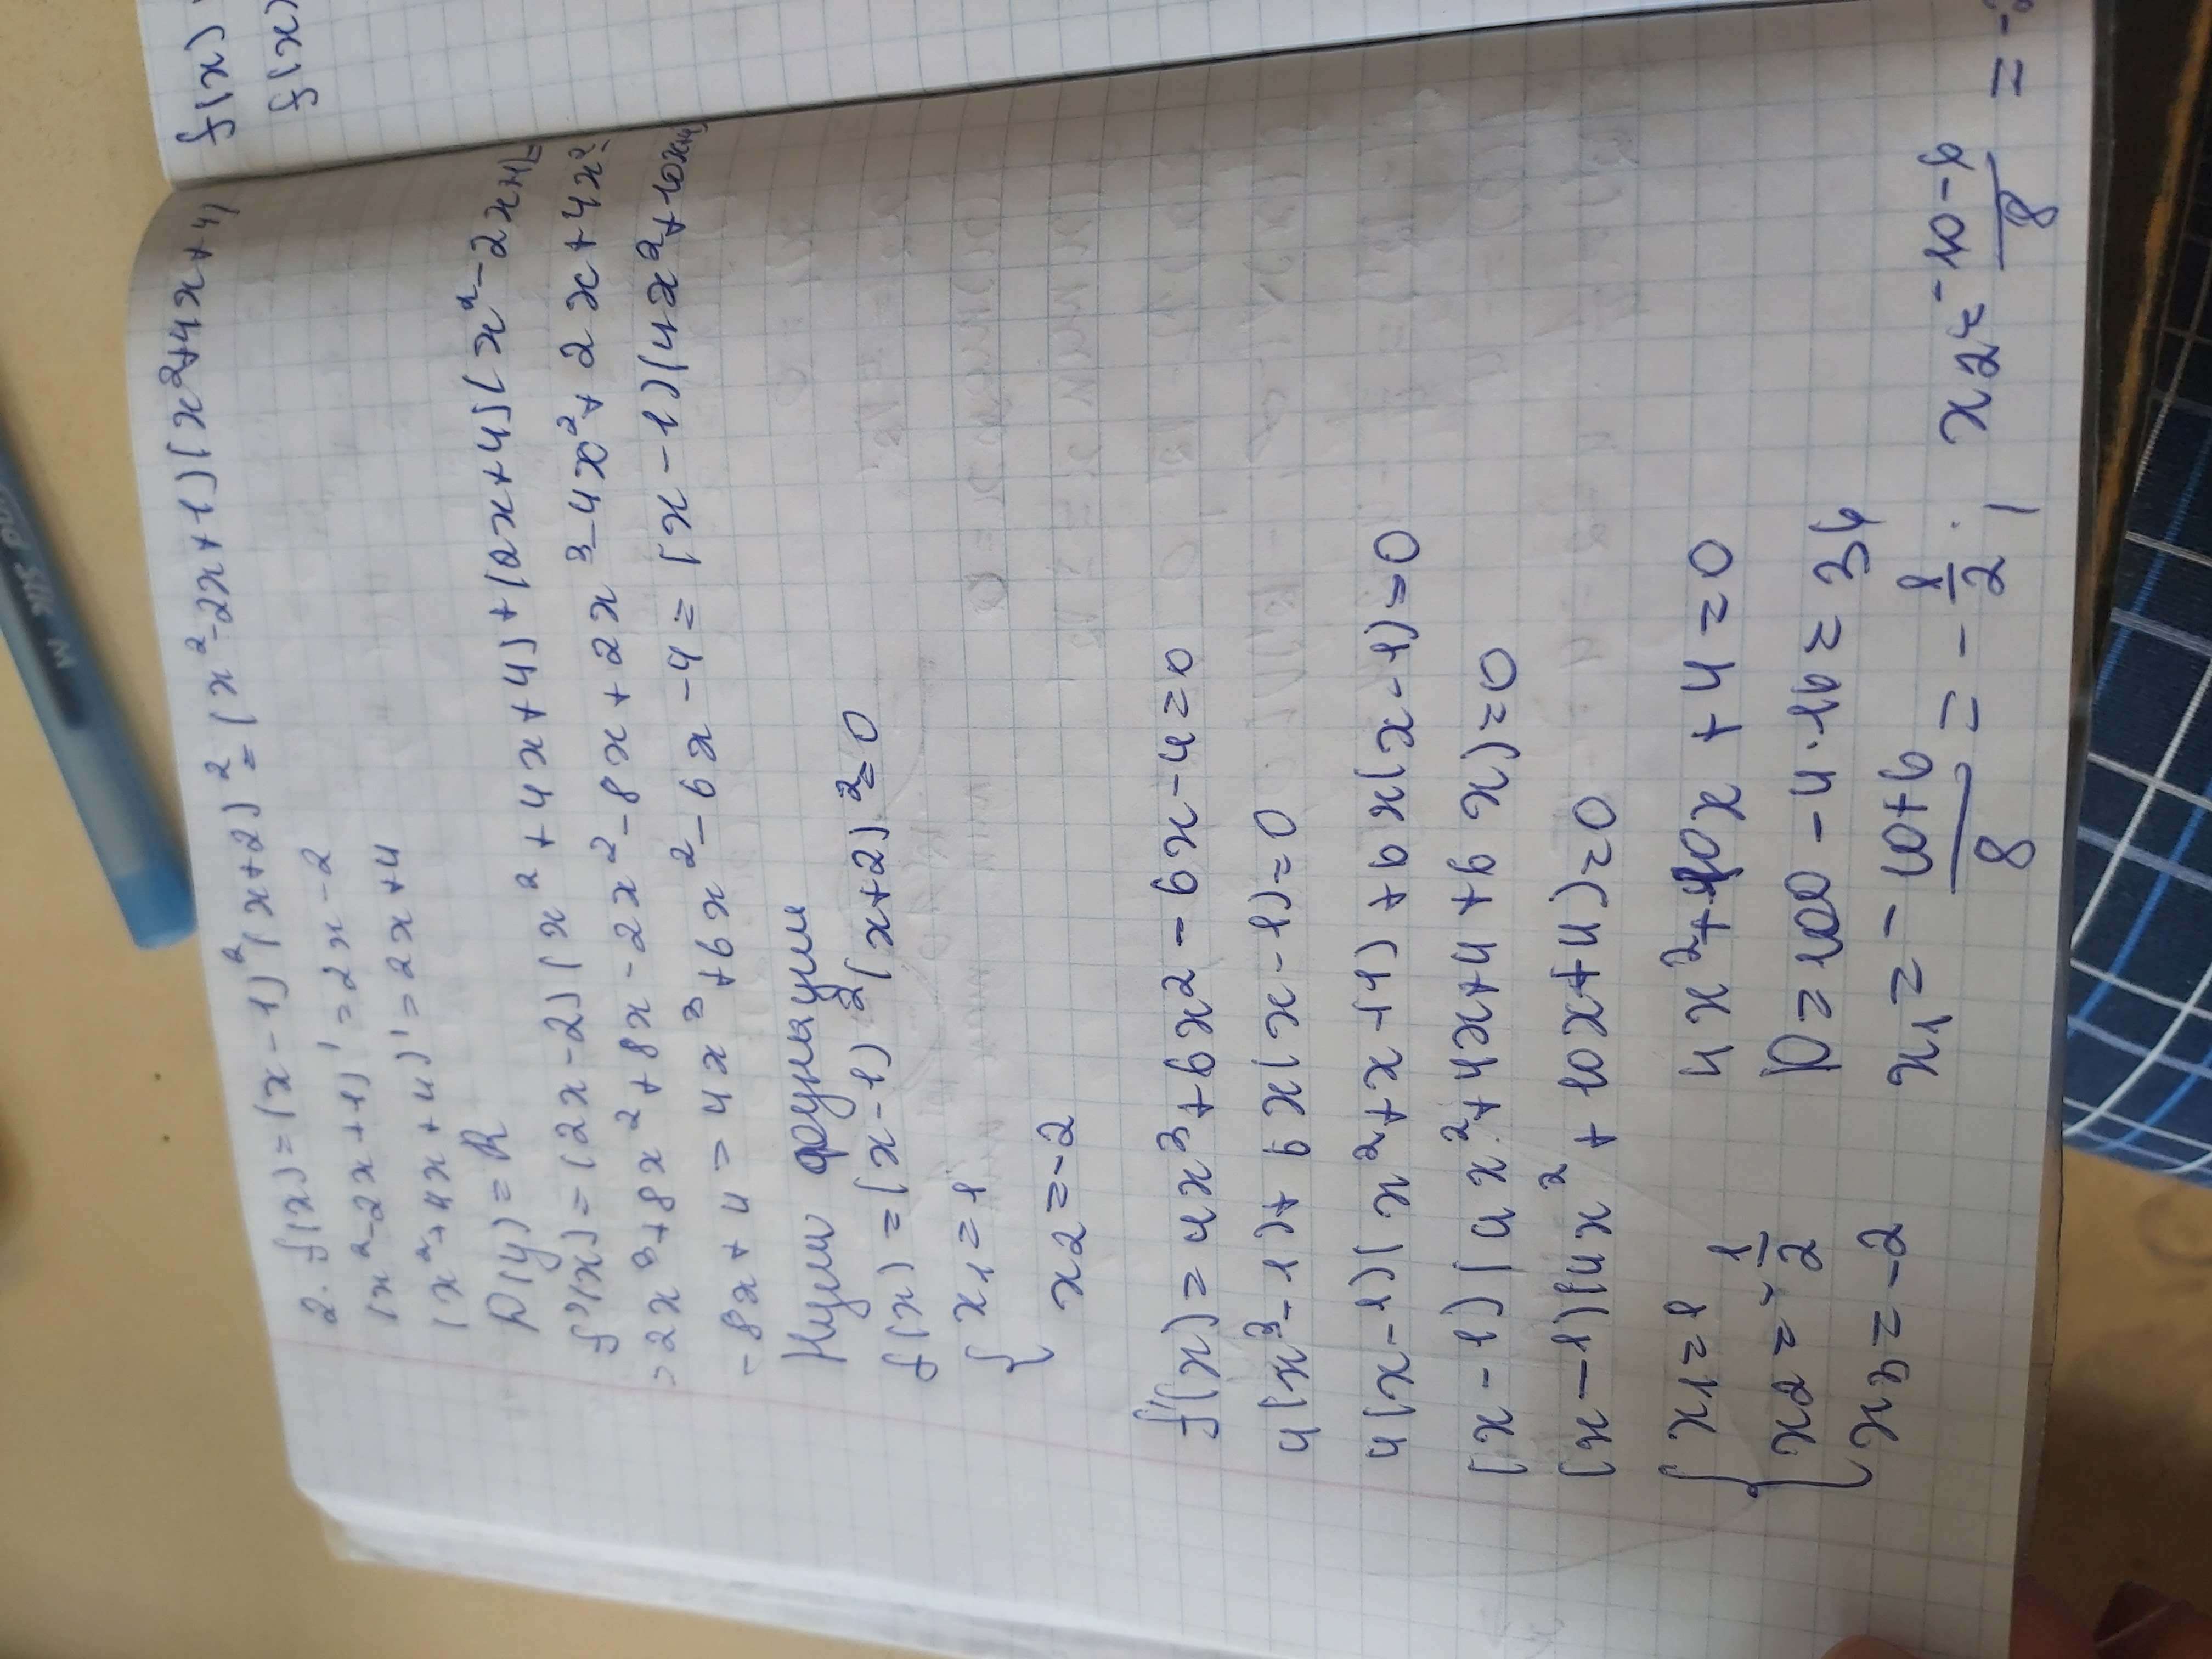 f(x)
f(x)
2. f(x)=(x-1)²(x+2)²=(x²-2x+1)(x²+4x+4)
(x²-2x+1)'=2x-2
(x²+4x+4)'=2x+4
D(y)=R
f'(x)=(2x-2)(x²+4x+4)+(2x+4)(x²-2x+1)=
=2x³+8x²+8x-2x²-8x+2x³-4x²+2x+4x²-
-8x+4=4x³+6x²-6x-4=(x-1)(4x²+10x+4)
Нули функции
f(x)=(x-1)²(x+2)²=0
{ x1=1
x2=-2
f'(x)=4x³+6x²-6x-4=0
4(x³-1)+6x(x-1)=0
4(x-1)(x²+x+1)+6x(x-1)=0
(x-1)(4x²+4x+4+6x)=0
(x-1)(4x²+10x+4)=0
{ x1=1
x2=-1/2
x3=-2
4x²+10x+4=0
D=100-4·16=36
x1=-10+6/8=-1/2; x2=-10-6/8=-